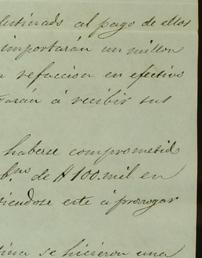 destinado al pago de ellos
importarán un millon
refaccion en efectivo
á recibir sus
haberse comprometid
b.nos de $100.mil en
ciendose este á prorogar
se hicieron una